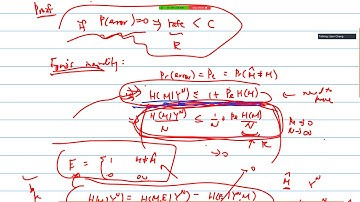 Proof
If P(error) → 0 ⇒ rate < C
R
Fano's inequality:
Pr(error) = Pe = P(M̂ ≠ M)
H(M|Y^N) ≤ 1 + Pe H(M)
need to
H(M|Y^N) / N ≤ 1/N + Pe H(M) / N
Pe → 0
N → ∞
→ 0
E = { 1 M ≠ M̂
0 ow
→ 0
M̂ Y^N
H(M|Y^N) = H(M,E|Y^N) - H(E|Y^N M)